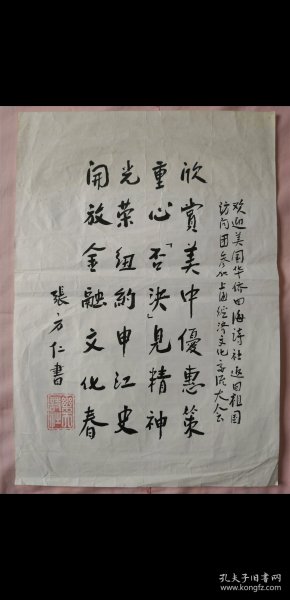 欢迎美国华侨四海诗社返回祖国
访问团参加上海经济文化交流大会
欣赏美中優惠策
重心「否決」見精神
光荣纽約申江史
開放金融文化春
張方仁書
孔夫子旧书网
www.kongfz.com